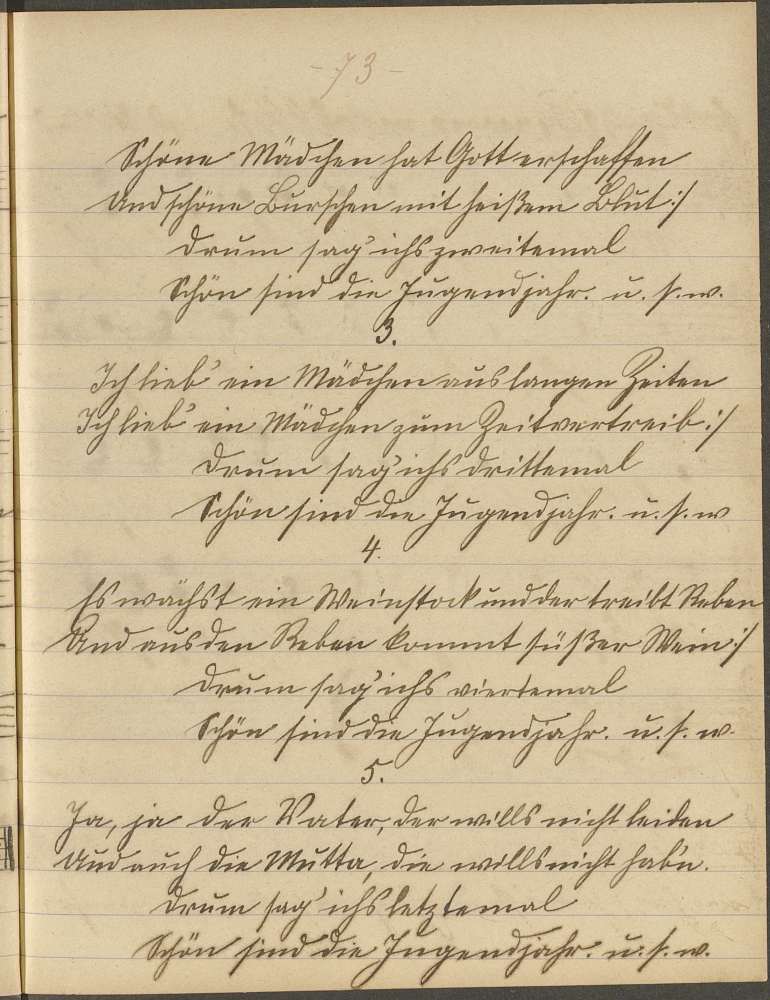 - 73 -
Schöne Mädchen hat Gott erschaffen
Und schöne Burschen mit heißem Blut :/
Drum sag' ichs zweitemal
Schön sind die Jugendjahr. u. s. w.
3.
Ich lieb' ein Mädchen aus langen Zeiten
Ich lieb' ein Mädchen zum Zeitvertreib :/
Drum sag' ichs drittemal
Schön sind die Jugendjahr. u. s. w
4.
Es wächst ein Weinstock und der treibt Reben
Und aus den Reben kommt süßer Wein :/
Drum sag' ichs viertemal
Schön sind die Jugendjahr. u. s. w.
5.
Ja, ja der Vater, der wills nicht leiden
Und auch die Mutta, die wills nicht hab'n.
Drum sag' ichs letztemal
Schön sind die Jugendjahr. u. s. w.